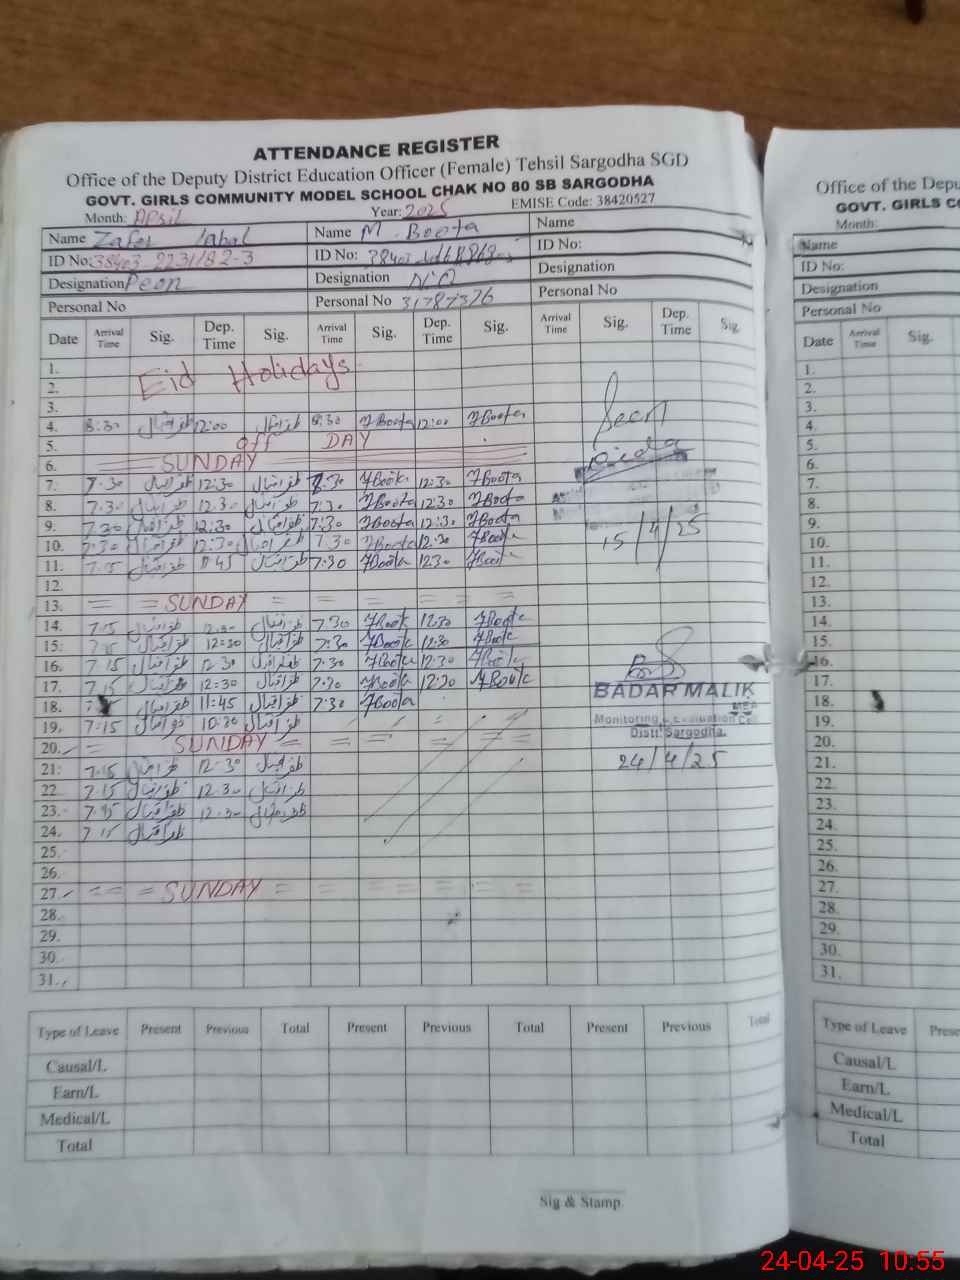 ATTENDANCE REGISTER
Office of the Deputy District Education Officer (Female) Tehsil Sargodha SGD
GOVT. GIRLS COMMUNITY MODEL SCHOOL CHAK NO 80 SB SARGODHA
Month: April Year: 2025 EMISE Code: 38420527
Name Zafer Iqbal Name M. Boota Name
ID No: 38403-2231182-3 ID No: ID No:
Designation Peon Designation N/Q Designation
Personal No Personal No 31787376 Personal No
Date Arrival Time Sig. Dep. Time Sig. Arrival Time Sig. Dep. Time Sig. Arrival Time Sig. Dep. Time Sig.
1.
2. Eid Holidays
3.
4. 8:30 ظفر اقبال 12:00 ظفر اقبال 8:30 Boota 12:00 Boota
5. off DAY
6. SUNDAY
7. 7:30 ظفر اقبال 12:30 ظفر اقبال 7:30 Boota 12:30 Boota
8. 7:30 ظفر اقبال 12:30 ظفر اقبال 7:30 Boota 12:30 Boota
9. 7:30 ظفر اقبال 12:30 ظفر اقبال 7:30 Boota 12:30 Boota
10. 7:30 ظفر اقبال 12:30 ظفر اقبال 7:30 Boota 12:30 Boota
11. 7:15 ظفر اقبال 11:45 ظفر اقبال 7:30 Boota 12:30 Boota
12.
13. = = SUNDAY = = = = = =
14. 7:15 ظفر اقبال 12:30 ظفر اقبال 7:30 Boota 12:30 Boota
15. 7:15 ظفر اقبال 12:30 ظفر اقبال 7:30 Boota 12:30 Boota
16. 7:15 ظفر اقبال 12:30 ظفر اقبال 7:30 Boota 12:30 Boota
17. 7:15 ظفر اقبال 12:30 ظفر اقبال 7:30 Boota 12:30 Boota
18. ظفر اقبال 11:45 ظفر اقبال 7:30 Boota
19. 7:15 ظفر اقبال 10:30 ظفر اقبال
20. = SUNDAY = = = = = =
21. 7:15 ظفر اقبال 12:30 ظفر اقبال
22. 7:15 ظفر اقبال 12:30 ظفر اقبال
23. ظفر اقبال 12:30 ظفر اقبال
24. 7:15 ظفر اقبال
25.
26.
27. = = = SUNDAY = = = = = =
28.
29.
30.
31.
Seen
15/4/25
BADAR MALIK
MEA
Monitoring & Evaluation Cell
Distt: Sargodha.
24/4/25
Type of Leave Present Previous Total Present Previous Total Present Previous Total
Causal/L
Earn/L
Medical/L
Total
Sig & Stamp.
Office of the Depu
GOVT. GIRLS CO
Month:
Name
ID No:
Designation
Personal No
Date Arrival Time Sig.
1.
2.
3.
4.
5.
6.
7.
8.
9.
10.
11.
12.
13.
14.
15.
16.
17.
18.
19.
20.
21.
22.
23.
24.
25.
26.
27.
28.
29.
30.
31.
Type of Leave Prese
Causal/L
Earn/L
Medical/L
Total
24-04-25 10:55